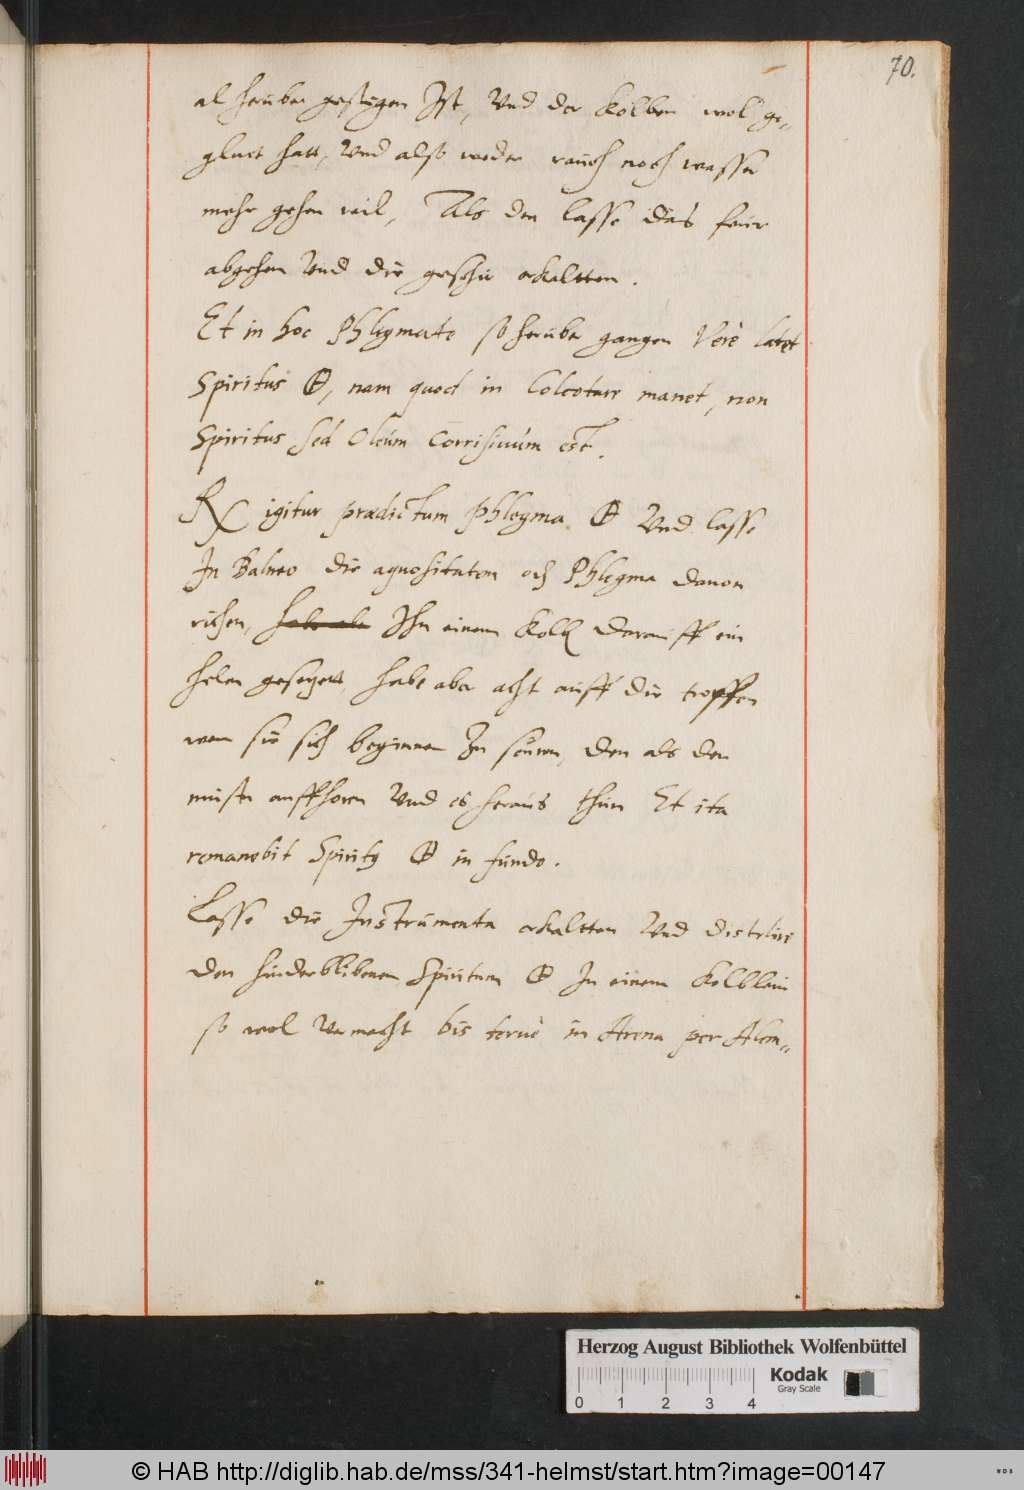 70.
al heruber gestigen Ist, Vnd der Kolben wol ge„
gluet hatt, Vnd also weder rauch noch wasser
mehr gehen wil, Als den lasse das feür
abgehen Vnd die geschir erkaltten.
Et in hoc Phlegmate so heruber gangen Verè latet
Spiritus 🜨, nam quod in Colcotarr manet, non
Spiritus sed Oleum Corrisiuum est.
℞ igitur prædictum phlegma 🜨 Vnd lasse
In Balneo die aquositatem och Phlegma dauon
richen, Ihn einem Kolb darauff ein
helm gesetzett, habe aber acht auff die tropffen
wen sie sich beginnen Zu seüren, den als den
auffhoren Vnd es heraus thun Et ita
remanebit Spirit9 🜨 in fundo.
Lasse die Instrumenta erkaltten Vnd distelire
den hinderblibenen Spiritum 🜨 In einem Kolblein
so wol vermacht bis terue in Arena per Alem„
Herzog August Bibliothek Wolfenbüttel
0 1 2 3 4
Kodak
Gray Scale
© HAB http://diglib.hab.de/mss/341-helmst/start.htm?image=00147